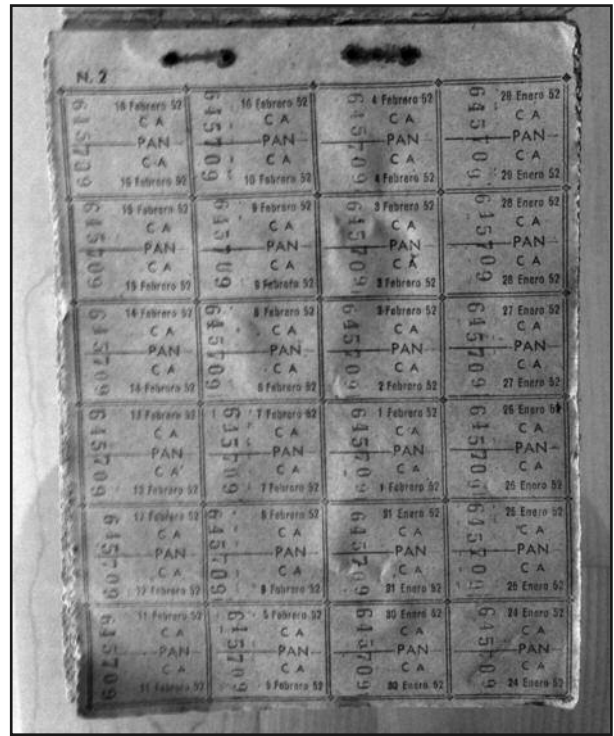 N. 2
645709
16 Febrero 52
C A
PAN
C A
16 Febrero 52
645709
10 Febrero 52
C A
PAN
C A
10 Febrero 52
645709
4 Febrero 52
C A
PAN
C A
4 Febrero 52
645709
29 Enero 52
C A
PAN
C A
29 Enero 52
645709
15 Febrero 52
C A
PAN
C A
15 Febrero 52
645709
9 Febrero 52
C A
PAN
C A
9 Febrero 52
645709
3 Febrero 52
C A
PAN
C A
3 Febrero 52
645709
28 Enero 52
C A
PAN
C A
28 Enero 52
645709
14 Febrero 52
C A
PAN
C A
14 Febrero 52
645709
8 Febrero 52
C A
PAN
C A
8 Febrero 52
645709
2 Febrero 52
C A
PAN
C A
2 Febrero 52
645709
27 Enero 52
C A
PAN
C A
27 Enero 52
645709
13 Febrero 52
C A
PAN
C A
13 Febrero 52
645709
7 Febrero 52
C A
PAN
C A
7 Febrero 52
645709
1 Febrero 52
C A
PAN
C A
1 Febrero 52
645709
26 Enero 52
C A
PAN
C A
26 Enero 52
645709
12 Febrero 52
C A
PAN
C A
12 Febrero 52
645709
6 Febrero 52
C A
PAN
C A
6 Febrero 52
645709
31 Enero 52
C A
PAN
C A
31 Enero 52
645709
25 Enero 52
C A
PAN
C A
25 Enero 52
645709
11 Febrero 52
C A
PAN
C A
11 Febrero 52
645709
5 Febrero 52
C A
PAN
C A
5 Febrero 52
645709
30 Enero 52
C A
PAN
C A
30 Enero 52
645709
24 Enero 52
C A
PAN
C A
24 Enero 52